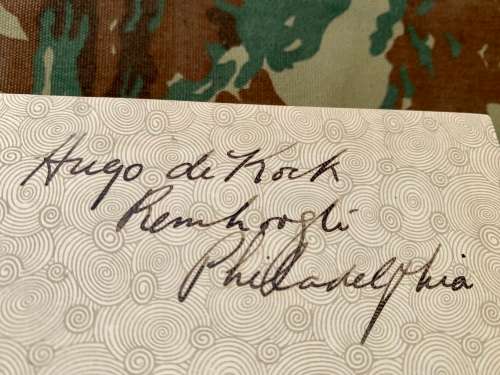 Hugo de Kock
Remhoogte
Philadelphia